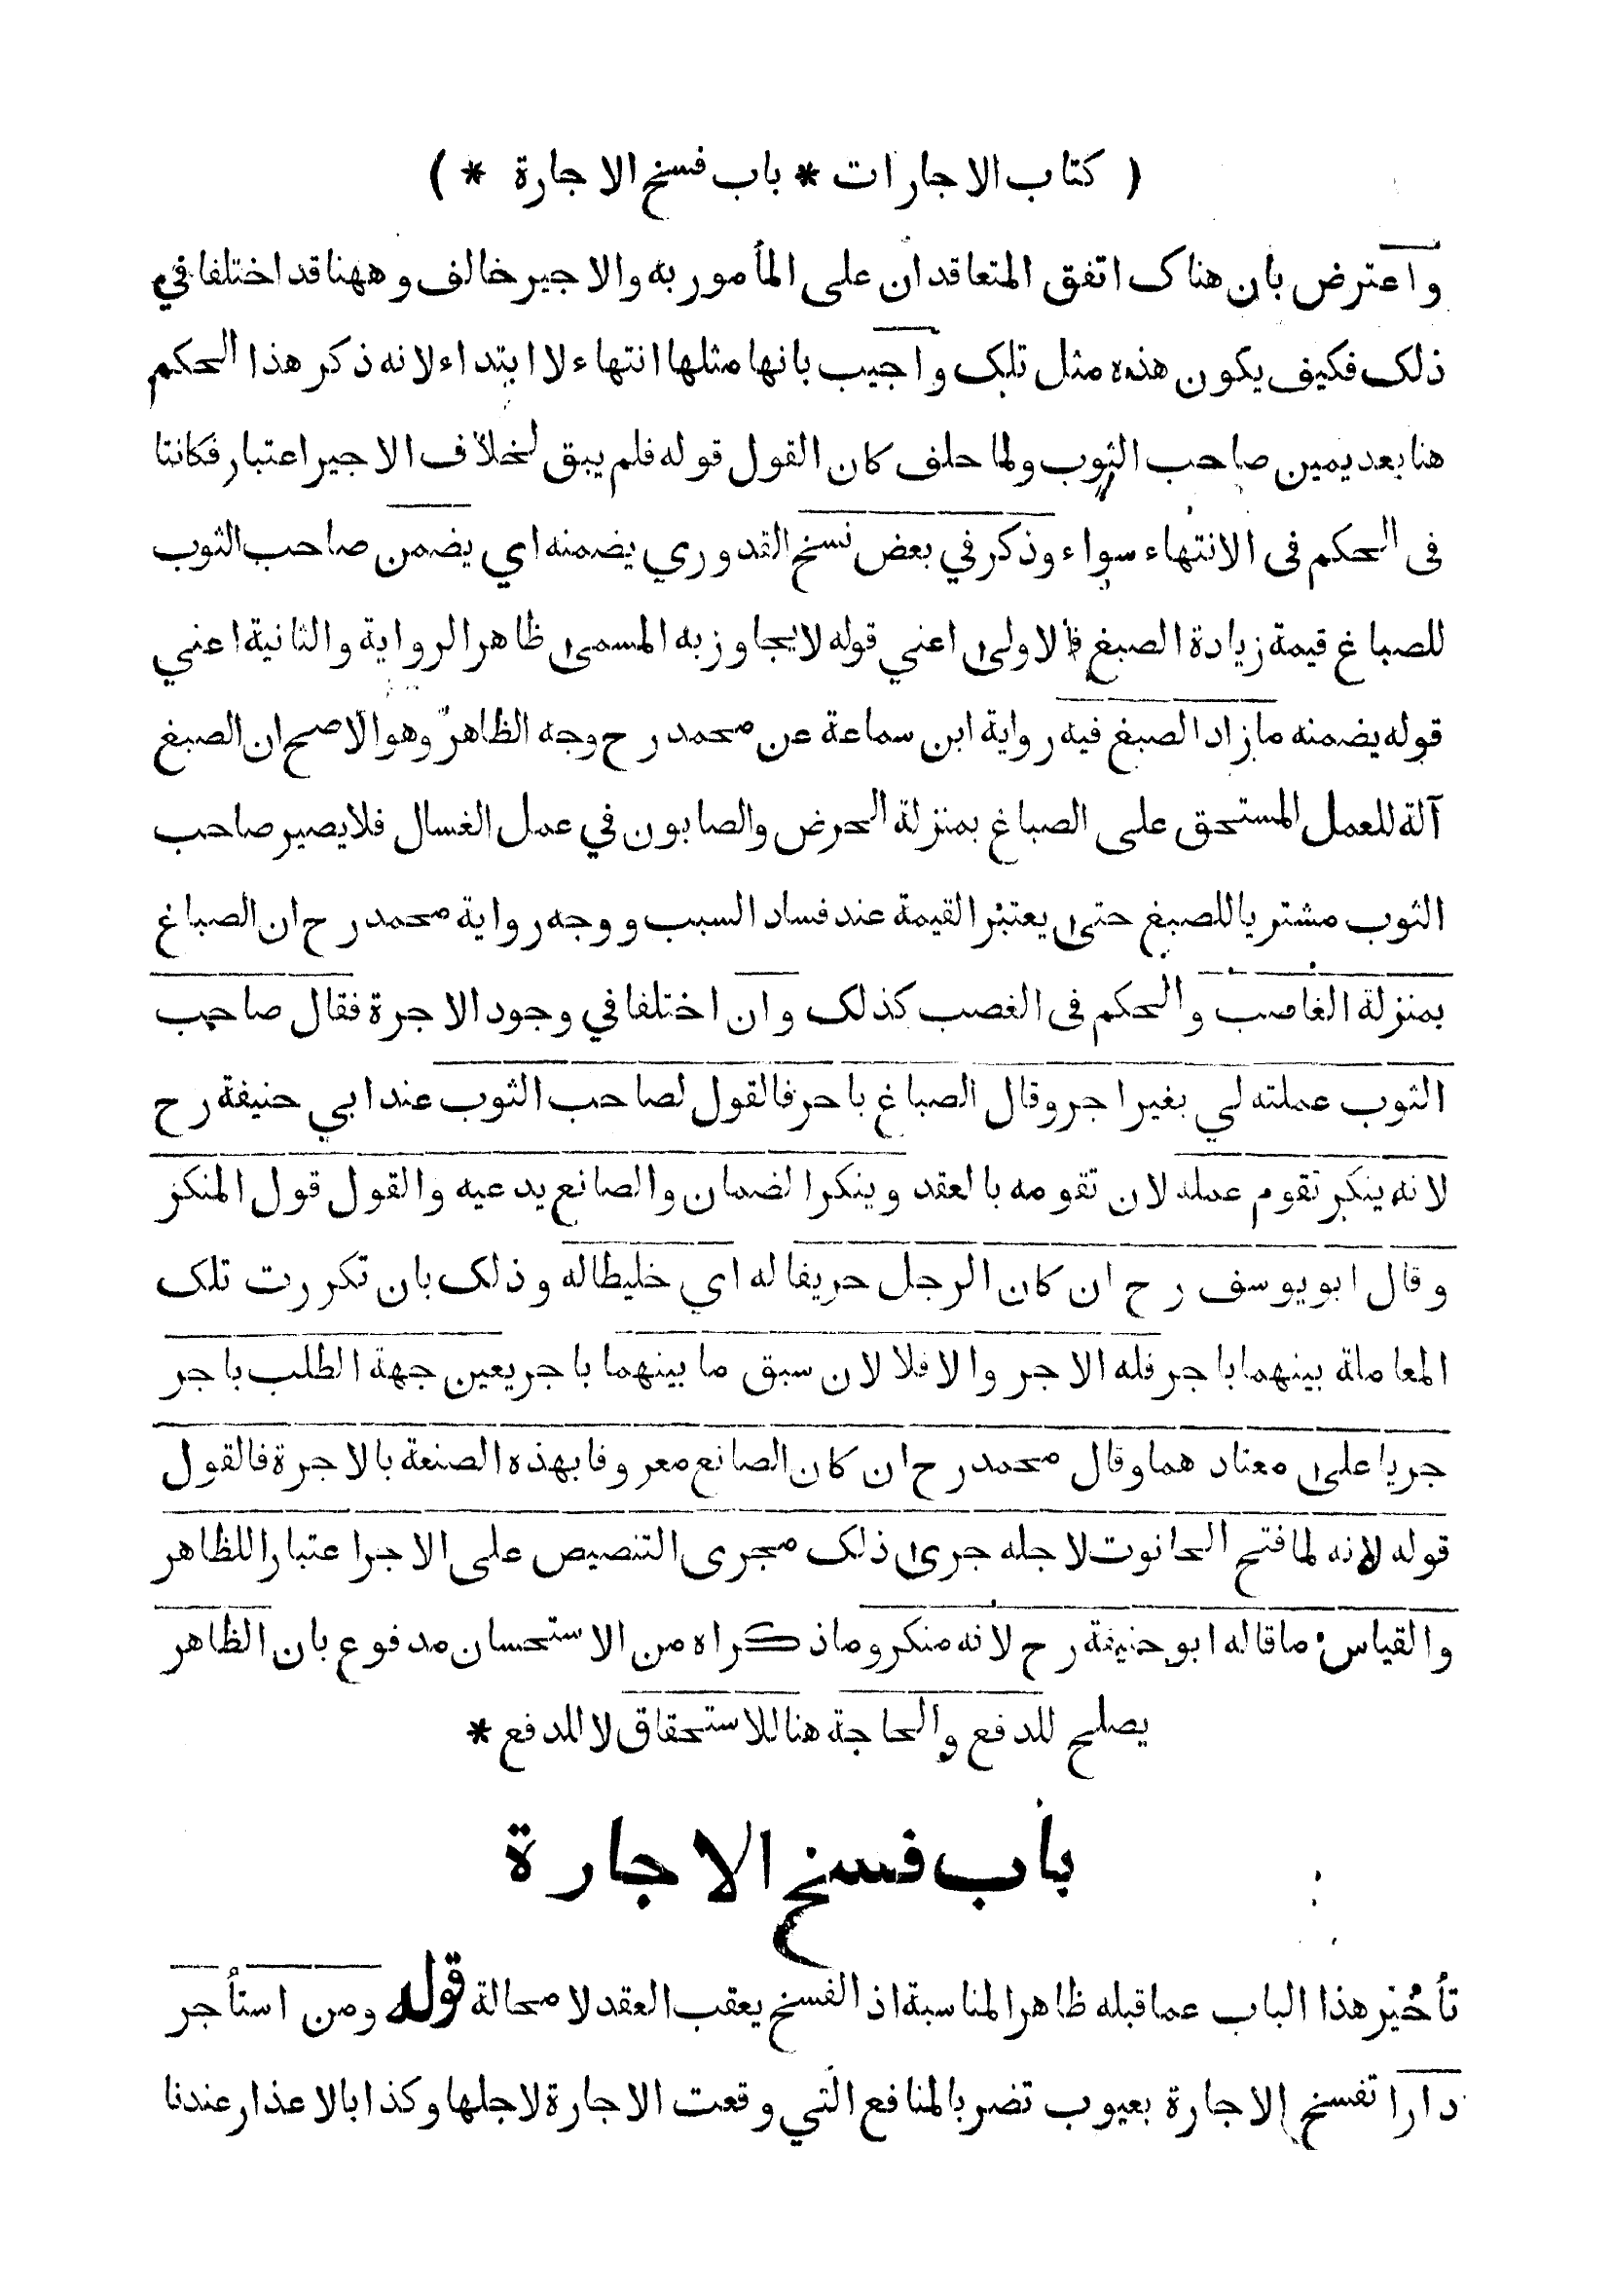 ( كتاب الاجارات * باب فسخ الاجارة * )
واعترض بان هناك اتفق المتعاقدان على المأمور به والاجير خالف وههنا قد اختلفا في
ذلك فكيف يكون هذه مثل تلك واجيب بانها مثلها انتهاء لا ابتداء لانه ذكر هذا الحكم
هنا بعد يمين صاحب الثوب ولما حلف كان القول قوله فلم يبق لخلاف الاجير اعتبار فكانتا
فى الحكم فى الانتهاء سواء وذكر في بعض نسخ القدوري يضمنه اي يضمن صاحب الثوب
للصباغ قيمة زيادة الصبغ فالاولى اعني قوله لايجاوز به المسمى ظاهر الرواية والثانية اعني
قوله يضمنه ما زاد الصبغ فيه رواية ابن سماعة عن محمد رح وجه الظاهر وهو الاصح ان الصبغ
آلة للعمل المستحق على الصباغ بمنزلة الحرض والصابون في عمل الغسال فلا يصير صاحب
الثوب مشتريا للصبغ حتى يعتبر القيمة عند فساد السبب ووجه رواية محمد رح ان الصباغ
بمنزلة الغاصب والحكم فى الغصب كذلك وان اختلفا في وجود الاجرة فقال صاحب
الثوب عملته لي بغير اجر وقال الصباغ باجر فالقول لصاحب الثوب عند ابي حنيفة رح
لانه ينكر تقوم عمله لان تقومه بالعقد وينكر الضمان والصانع يدعيه والقول قول المنكر
وقال ابو يوسف رح ان كان الرجل حريفا له اي خليطا له وذلك بان تكررت تلك
المعاملة بينهما باجر فله الاجر والا فلا لان سبق ما بينهما باجر يعين جهة الطلب باجر
جريا على معتادهما وقال محمد رح ان كان الصانع معروفا بهذه الصنعة بالاجرة فالقول
قوله لانه لما فتح الحانوت لاجله جرى ذلك مجرى التنصيص على الاجر اعتبارا للظاهر
والقياس ما قاله ابو حنيفة رح لانه منكر وما ذكراه من الاستحسان مدفوع بان الظاهر
يصلح للدفع والحاجة هنا للاستحقاق لا للدفع *
باب فسخ الاجارة
تأخير هذا الباب عما قبله ظاهر المناسبة اذ الفسخ يعقب العقد لا محالة قوله ومن استأجر
دارا تفسخ الاجارة بعيوب تضر بالمنافع التي وقعت الاجارة لاجلها وكذا بالاعذار عندنا